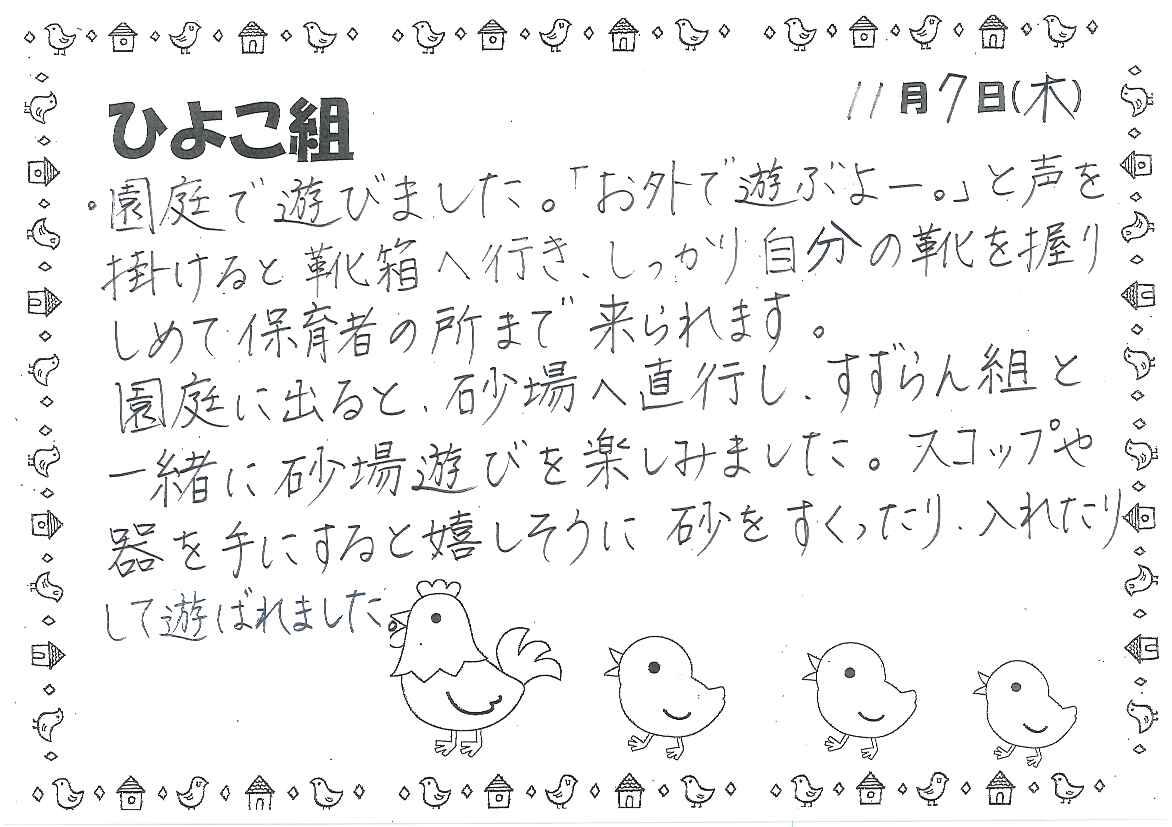 11月7日(木)
ひよこ組
・園庭で遊びました。「お外で遊ぶよー。」と声を
掛けると靴箱へ行き、しっかり自分の靴を握り
しめて保育者の所まで来られます。
園庭に出ると、砂場へ直行し、すずらん組と
一緒に砂場遊びを楽しみました。スコップや
器を手にすると嬉しそうに砂をすくったり、入れたり
して遊ばれました。